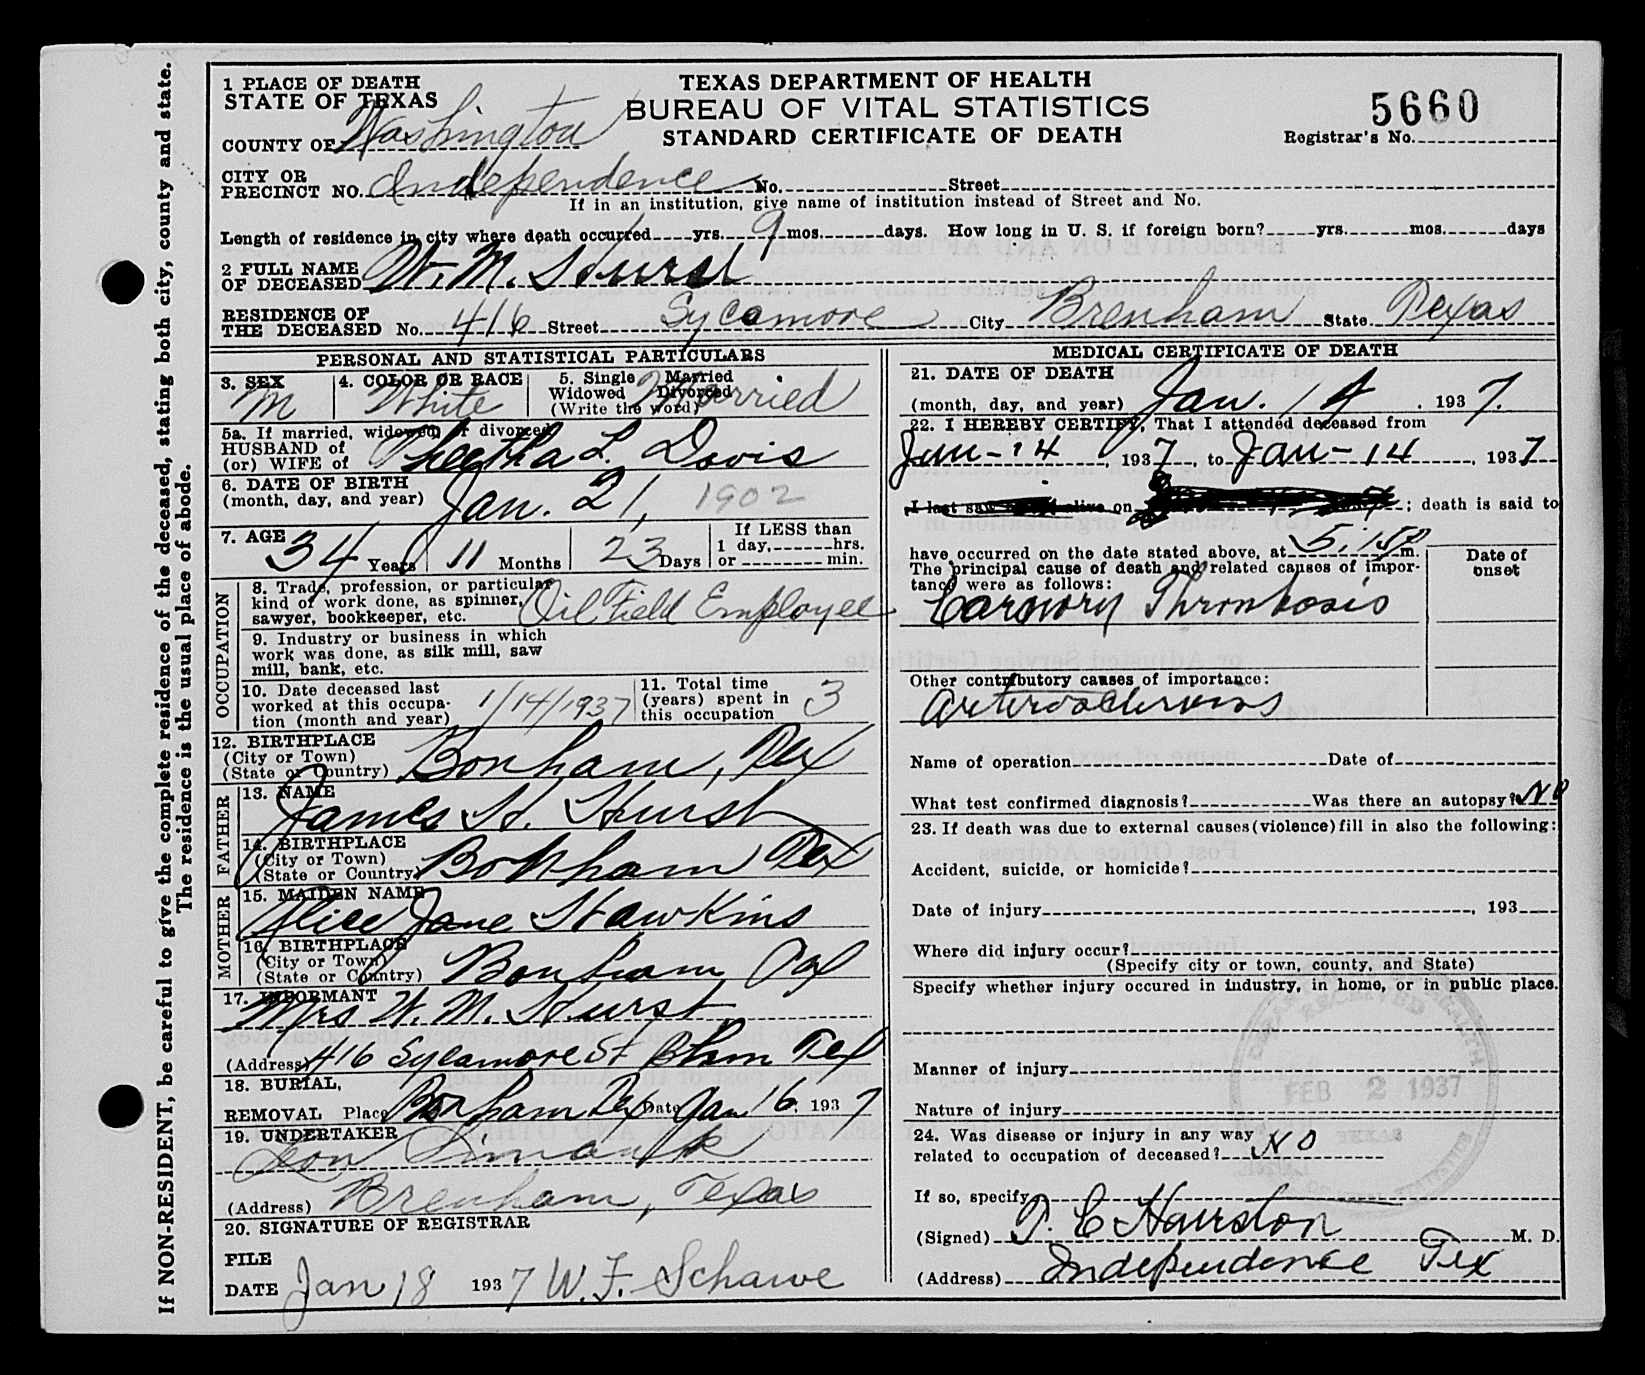 If NON-RESIDENT, be careful to give the complete residence of the deceased, stating both city, county and state.
The residence is the usual place of abode.
1 PLACE OF DEATH
STATE OF TEXAS
COUNTY OF Washington
TEXAS DEPARTMENT OF HEALTH
BUREAU OF VITAL STATISTICS
STANDARD CERTIFICATE OF DEATH
5660
Registrar's No.
CITY OR
PRECINCT NO. Independence No. Street
If in an institution, give name of institution instead of Street and No.
Length of residence in city where death occurred yrs. 9 mos. days. How long in U. S. if foreign born? yrs. mos. days
2 FULL NAME
OF DECEASED W. M. Hurst
RESIDENCE OF
THE DECEASED No. 416 Street Sycamore City Brenham State Texas
PERSONAL AND STATISTICAL PARTICULARS
3. SEX M
4. COLOR OR RACE White
5. Single Married
Widowed Divorced
(Write the word) Married
5a. If married, widowed, or divorced
HUSBAND of
(or) WIFE of L. Davis
6. DATE OF BIRTH
(month, day, and year) Jan. 21, 1902
7. AGE 34 Years 11 Months 23 Days
If LESS than
1 day, hrs.
or min.
OCCUPATION
8. Trade, profession, or particular
kind of work done, as spinner,
sawyer, bookkeeper, etc. Oil Field Employee
9. Industry or business in which
work was done, as silk mill, saw
mill, bank, etc.
10. Date deceased last
worked at this occupa-
tion (month and year) 1/14/1937
11. Total time
(years) spent in
this occupation 3
12. BIRTHPLACE
(City or Town)
(State or Country) Bonham, Tex
FATHER
13. NAME
James H. Hurst
14. BIRTHPLACE
(City or Town)
(State or Country) Bonham Tex
MOTHER
15. MAIDEN NAME
Alice Jane Hawkins
16. BIRTHPLACE
(City or Town)
(State or Country) Bonham Tex
17. INFORMANT
Mrs W. M. Hurst
(Address) 416 Sycamore St Bhm Tex
18. BURIAL,
REMOVAL Place Bonham Tex Date Jan 16, 1937
19. UNDERTAKER
Leon Simank
(Address) Brenham, Texas
20. SIGNATURE OF REGISTRAR
FILE
DATE Jan 18 1937 W. F. Schawe
MEDICAL CERTIFICATE OF DEATH
21. DATE OF DEATH
(month, day, and year) Jan. 14, 1937.
22. I HEREBY CERTIFY, That I attended deceased from
Jan-14, 1937, to Jan-14, 1937
I last saw alive on ; death is said to
have occurred on the date stated above, at 5:15P m.
The principal cause of death and related causes of impor-
tance were as follows:
Date of
onset
Coronory Thrombosis
Other contributory causes of importance:
Name of operation Date of
What test confirmed diagnosis? Was there an autopsy? NO
23. If death was due to external causes (violence) fill in also the following:
Accident, suicide, or homicide?
Date of injury , 193
Where did injury occur?
(Specify city or town, county, and State)
Specify whether injury occured in industry, in home, or in public place.
Manner of injury
Nature of injury
RECEIVED
FEB 2 1937
TEXAS
24. Was disease or injury in any way
related to occupation of deceased? NO
If so, specify
(Signed) T. C. Hairston M. D.
(Address) Independence Tex